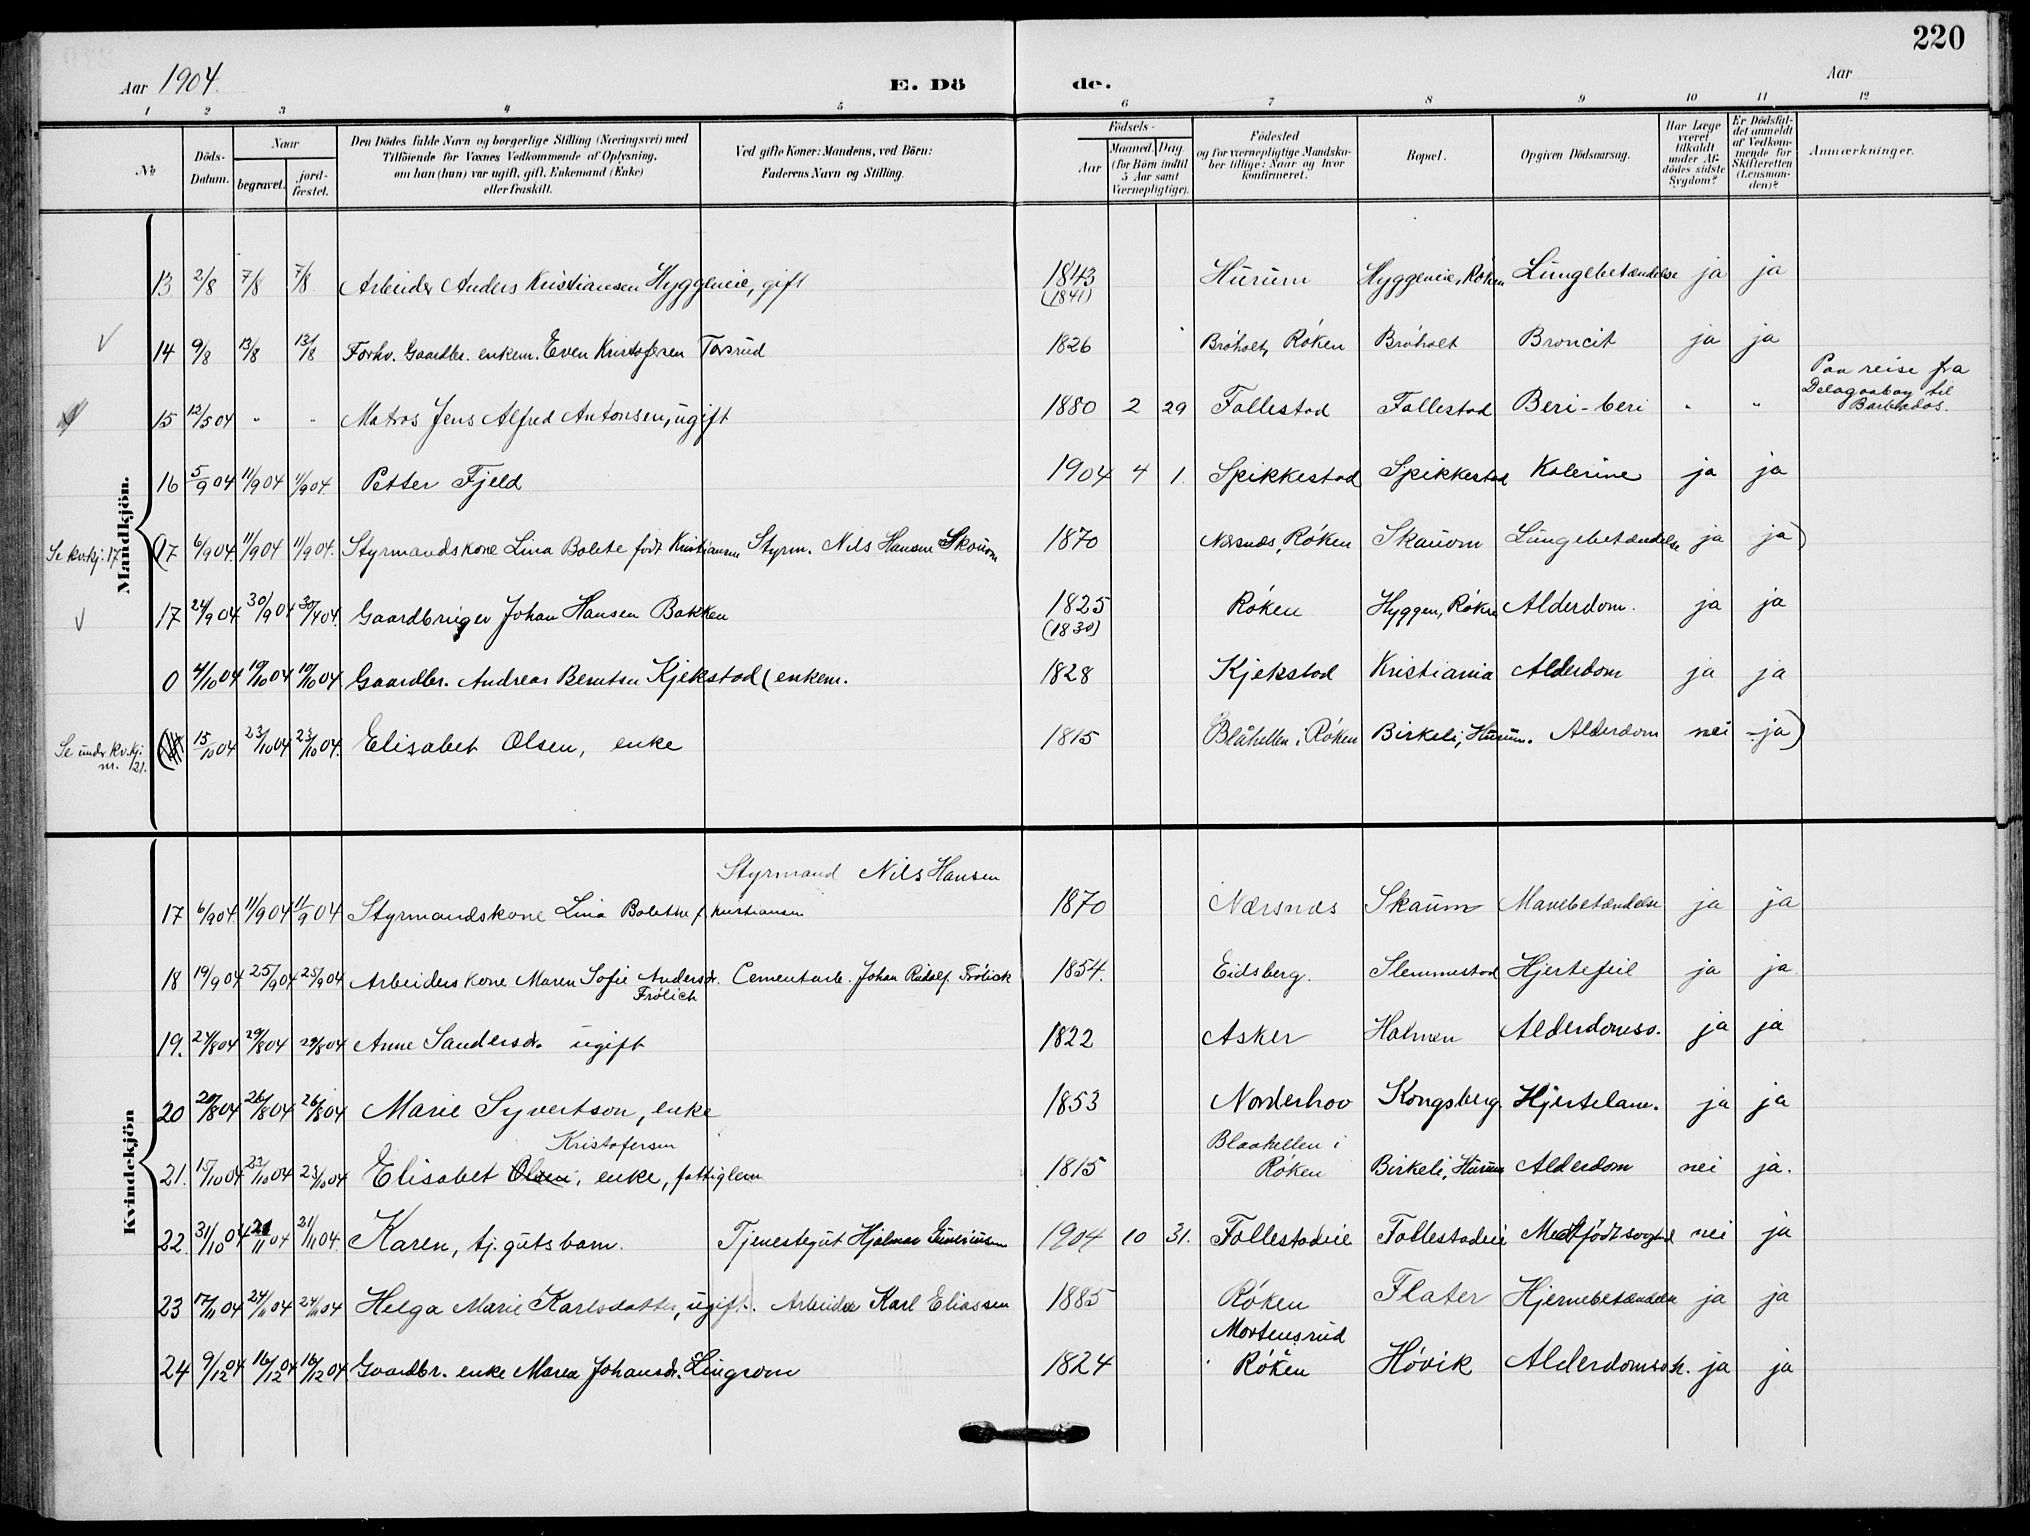 220
Aar 1904. E. Dö de. Aar
1 2 3 4 5 6 7 8 9 10 11 12
No
Döds-Datum.
Naar
begravet.
jord-fæstet.
Den Dödes fulde Navn og borgerlige Stilling (Næringsvei) med
Tilföiende for Voxnes Vedkommende af Oplysning,
om han (hun) var ugift, gift, Enkemand (Enke)
eller fraskilt.
Ved gifte Koner: Mandens, ved Börn:
Faderens Navn og Stilling.
Födsels-
Aar
Maaned. Dag.
(for Börn indtil
5 Aar samt
Værnepligtige).
Födested
og for værnepligtige Mandska-
ber tillige: Naar og hvor
konfirmeret.
Bopæl.
Opgiven Dödsaarsag.
Har Læge
været
tilkaldt
under Af-
dödes sidste
Sygdom?
Er Dödsfal-
det anmeldt
af Vedkom-
mende for
Skifteretten
(Lensman-
den)?
Anmærkninger.
Mandkjön.
13 2/8 7/8 7/8 Arbeider Anders Kristiansen Hyggeneie, gift 1843 Hurum Hyggeneie, Röken Lungebetændelse ja ja
(1841)
14 9/8 13/8 13/8 Forhv. Gaardbr. enkem. Even Kristofersen Torsrud 1826 Bråholt, Röken Bråholt Broncit ja ja
15 12/5 04 " " Matros Jens Alfred Antonsen, ugift 1880 2 29 Follestad Follestad Beri-beri " " Paa reise fra
Delagoabay til
Barbados.
16 5/9 04 11/9 04 11/9 04. Petter Fjeld 1904 4 1 Spikkestad Spikkestad Kolerine ja ja
Se kv.kj. 17 (17 6/9 04. 11/9 04 11/9 04. Styrmandskone Lina Bolete födt Kristiansen Styrm. Nils Hansen Skaum 1870 Nærsnes, Röken Skaum Lungebetændelse ja ja)
17 24/9 04. 30/9 04 30/9 04. Gaardbruger Johan Hansen Bakken 1825 Röken Hyggen, Röken Alderdom. ja ja
(1830)
0 4/10 04 10/10 04 10/10 04. Gaardbr. Andreas Berntsen Kjekstad (enkem. 1828 Kjekstad Kristiania Alderdom ja ja
Se under kv.kj. nr. 21. ( 15/10 04 23/10 04 23/10 04. Elisabet Olsen, enke 1815 Blåhellen i Röken Birkeli, Hurum. Alderdom nei - ja)
Kvindekjön
Styrmand Nils Hansen
17 6/9 04. 11/9 04 11/9 04 Styrmandskone Lina Bolette f. Kristiansen 1870 Nærsnes Skaum Mavebetændelse ja ja
18 19/9 04 25/9 04 25/9 04 Arbeiderskone Maren Sofie Andersdr. Cementarb. Johan Rudolf Frölich 1854. Eidsberg. Slemmestad Hjertefeil ja ja
Frölich
19. 24/8 04 29/8 04 29/8 04 Anne Sandersdr. ugift 1822 Asker Holmen Alderdomss. ja ja
20 20/8 04 26/8 04 26/8 04 Marie Syvertson, enke 1853 Norderhov Kongsberg. Hjertelam. ja ja
Kristofersen Blaahellen i
21. 15/10 04 23/10 04 23/10 04 Elisabet Olsen, enke, fattiglem 1815 Röken Birkeli, Hurum Alderdom nei ja.
22. 31/10 04 21/11 04 21/11 04. Karen, tj.gutsbarn. Tjenestegut Hjalmar Gunerius 1904 10 31. Follestadeie Follestadeie Medfödt svaghed nei ja
23 17/11 04 24/11 04 24/11 04 Helga Marie Karlsdatter, ugift. Arbeider Karl Eliassen 1885 Röken Flater Hjernebetændelse ja ja
Mortensrud
24 9/12 04 16/12 04 16/12 04 Gaardbr. enke Maren Johansdr. Lingrom 1824 Röken Hövik Alderdomssv. ja ja